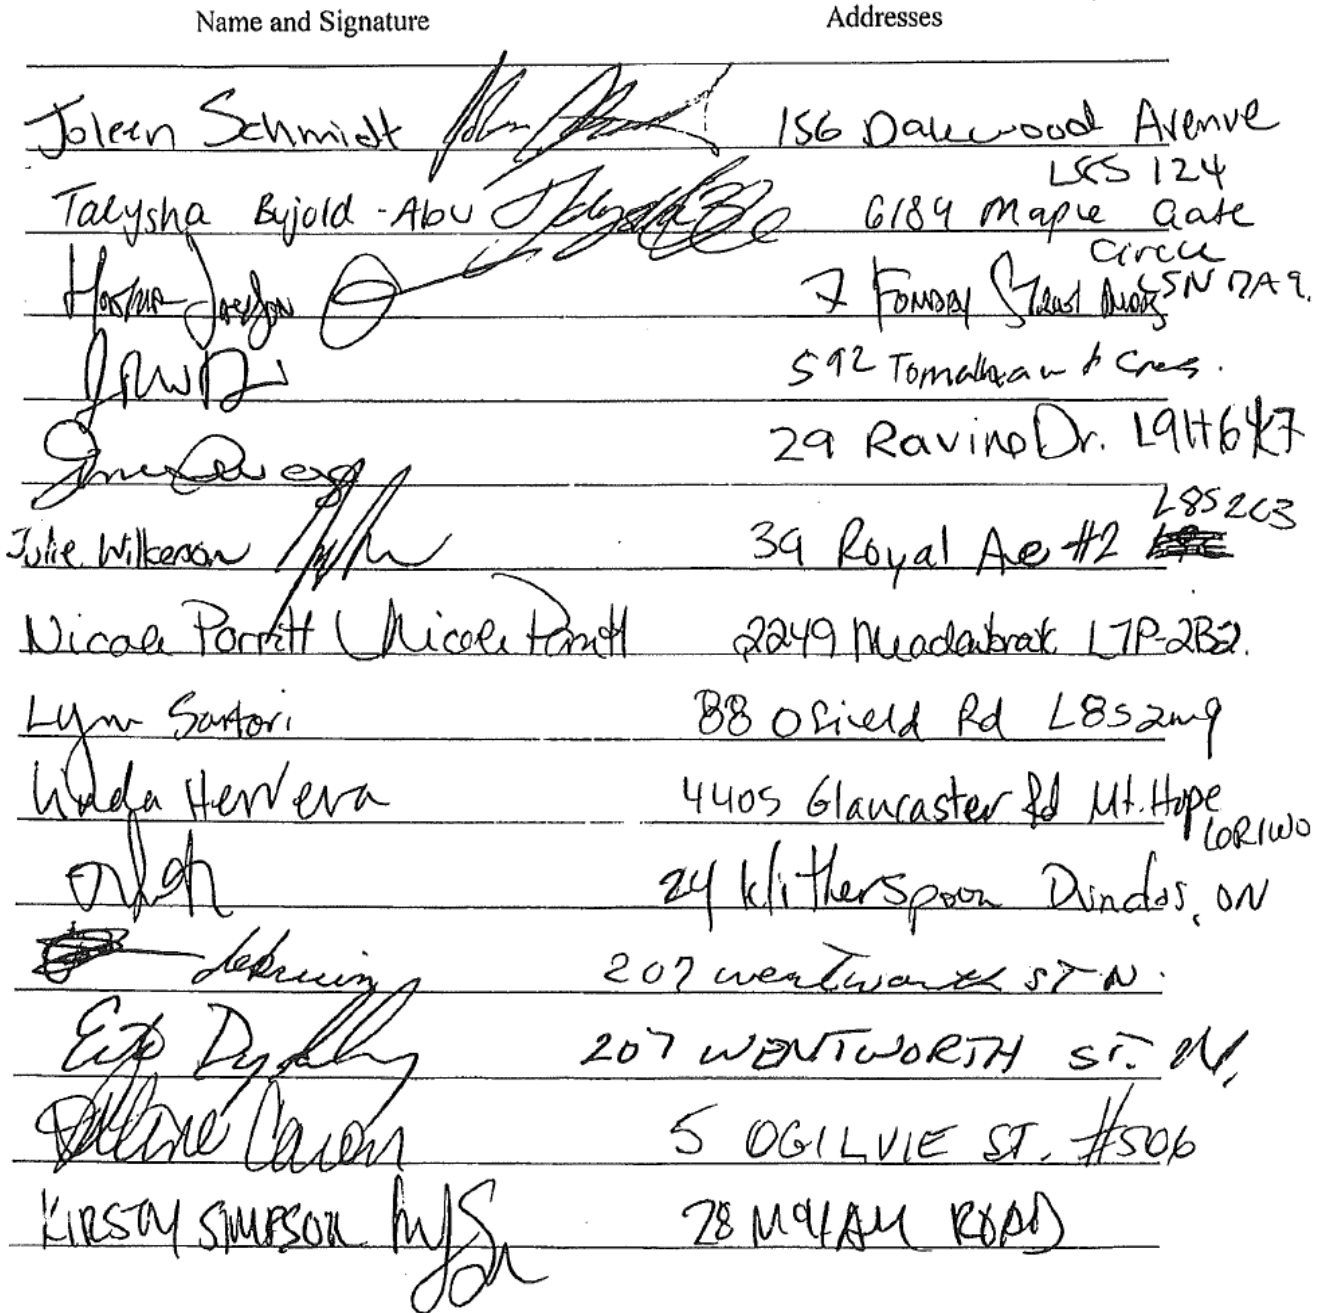 Name and Signature Addresses
Joleen Schmidt 156 Dalewood Avenue
L8S 1Z4
Talysha Bujold-Abu 6189 Maple Gate
Circle
L5N 7A9.
7 Street
592 Tomahawk Cres.
29 Ravine Dr. L9H6K7
L8S2C3
Julie Wilkerson 39 Royal Ave #2
Nicole Porritt Nicole Porritt 2249 Meadowbrook L7P-2B2.
Lynn Sartori 88 Rd L8S2M9
Linda Herrera 4405 Glancaster Rd Mt. Hope
L0R1W0
24 Witherspoon Dundas, ON
207 wentworth ST N.
207 WENTWORTH ST. N.
5 OGILVIE ST. #506
KIRSTY SIMPSON 28 ROAD